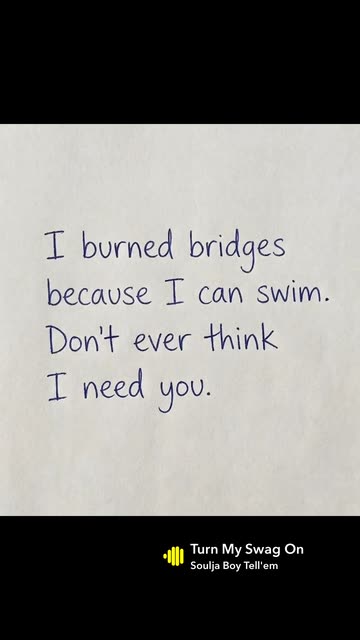 I burned bridges
because I can swim.
Don't ever think
I need you.
Turn My Swag On
Soulja Boy Tell'em